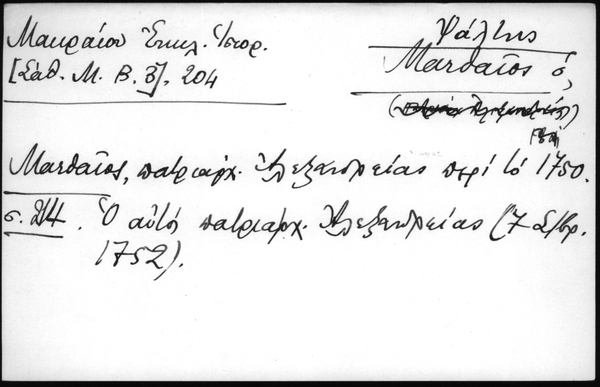 Μακραίου Ἐκκλ. Ἱστορ.
[Σάθ. Μ. Β. 3], 204
Ψάλτης
Ματθαῖος ὁ,
Ματθαῖος, πατριάρχ. Ἀλεξανδρείας περί τό 1750.
σ. 214. Ὁ αὐτός πατριάρχ. Ἀλεξανδρείας (7 Σ/βρ.
1752).